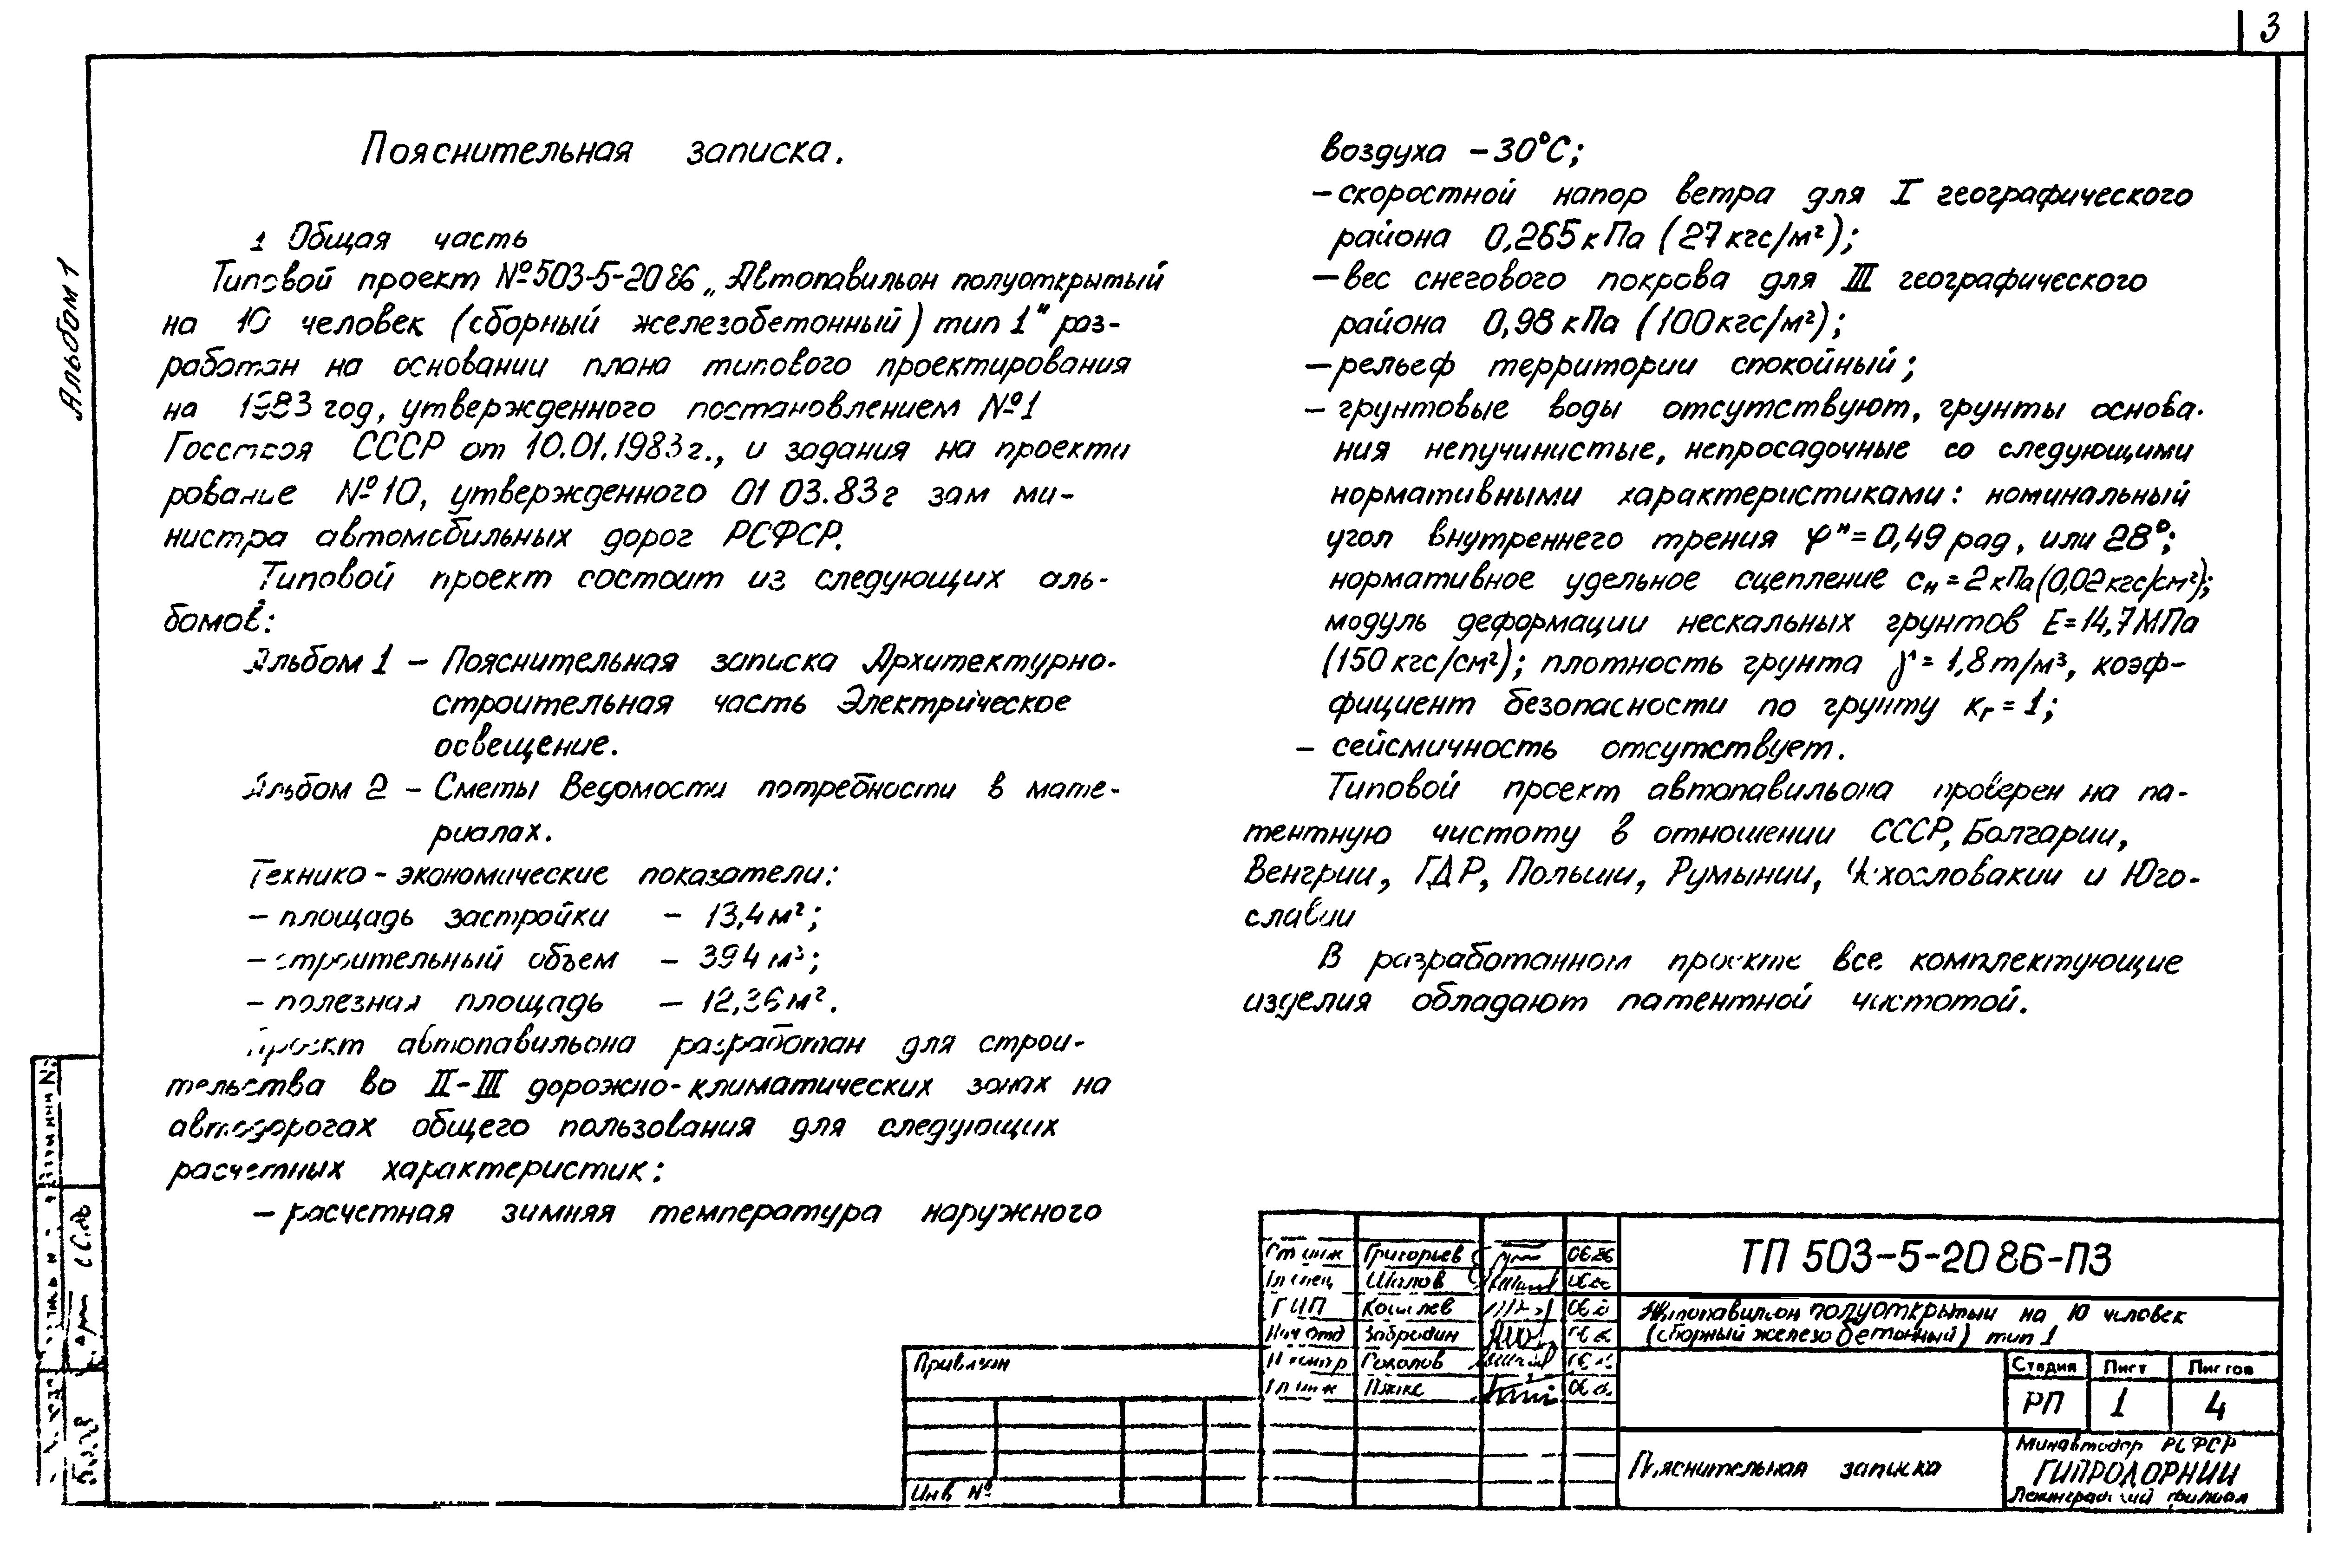 3
Альбом 1
Пояснительная записка.
1 Общая часть
Типовой проект №503-5-20 86 „Автопавильон полуоткрытый
на 10 человек (сборный железобетонный) тип 1" раз-
работан на основании плана типового проектирования
на 1983 год, утвержденного постановлением №1
Госстроя СССР от 10.01.1983г., и задания на проекти
рование №10, утвержденного 01 03.83г зам ми-
нистра автомобильных дорог РСФСР.
Типовой проект состоит из следующих аль-
бомов:
Альбом 1 – Пояснительная записка Архитектурно-
строительная часть Электрическое
освещение.
Альбом 2 – Сметы Ведомости потребности в мате-
риалах.
Технико-экономические показатели:
– площадь застройки – 13,4 м²;
– строительный объем – 394 м³;
– полезная площадь – 12,36 м².
Проект автопавильона разработан для строи-
тельства во II-III дорожно-климатических зонах на
автодорогах общего пользования для следующих
расчетных характеристик:
– расчетная зимняя температура наружного
воздуха –30°С;
– скоростной напор ветра для I географического
района 0,265 кПа (27 кгс/м²);
– вес снегового покрова для III географического
района 0,98 кПа (100 кгс/м²);
– рельеф территории спокойный;
– грунтовые воды отсутствуют, грунты основа-
ния непучинистые, непросадочные со следующими
нормативными характеристиками: номинальный
угол внутреннего трения φⁿ=0,49 рад, или 28°;
нормативное удельное сцепление cн=2 кПа (0,02 кгс/см²);
модуль деформации нескальных грунтов Е=14,7 МПа
(150 кгс/см²); плотность грунта γ=1,8 т/м³, коэф-
фициент безопасности по грунту кг=1;
– сейсмичность отсутствует.
Типовой проект автопавильона проверен на па-
тентную чистоту в отношении СССР, Болгарии,
Венгрии, ГДР, Польши, Румынии, Чехословакии и Юго-
славии
В разработанном проекте все комплектующие
изделия обладают патентной чистотой.
ТП 503-5-20 86-ПЗ
Автопавильон полуоткрытый на 10 человек
(сборный железобетонный) тип 1
Ст инж Григорьев 06.86
Гл спец Шилов
ГИП Кошелев
Нач отд
Н контр Соколов
Гл инж
Привязан
Инв №
Стадия Лист Листов
РП 1 4
Пояснительная записка
Минавтодор РСФСР
ГИПРОДОРНИИ
Ленинградский филиал